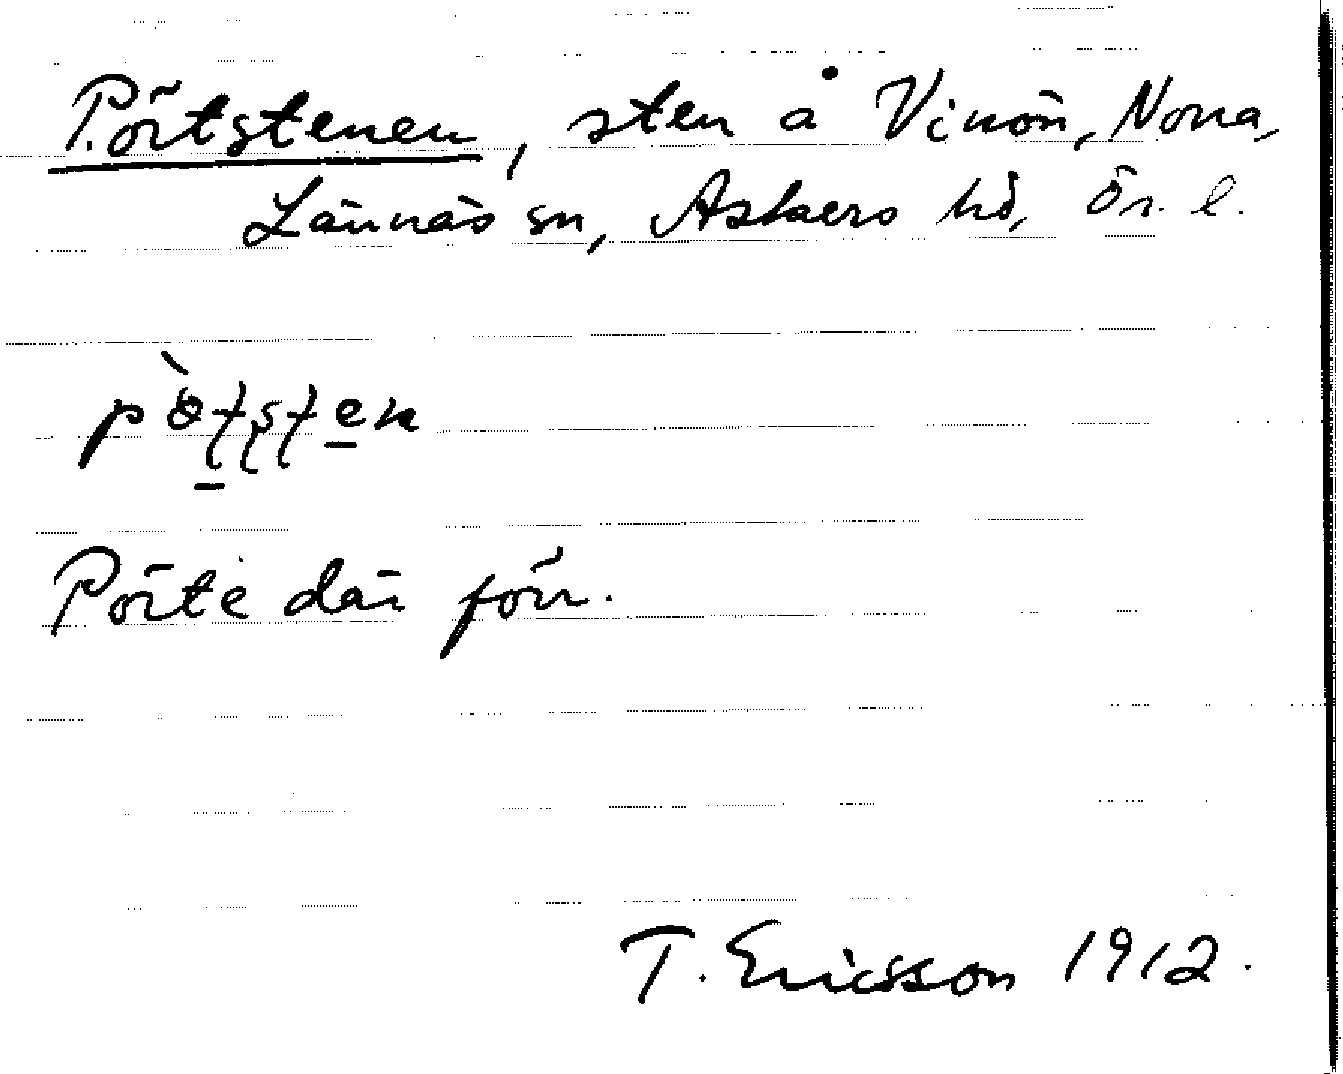 Pörtstenen, sten å Vinön, Norra,
Lännäs sn, Askers hd, Ör. l.
Pörte där förr.
T. Ericsson 1912.